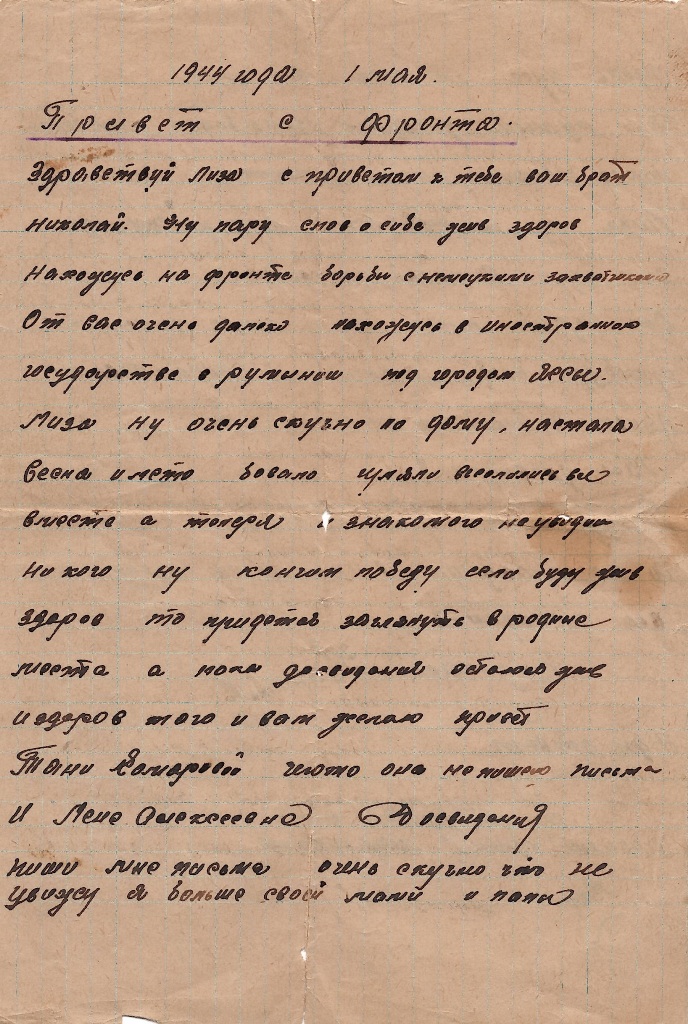 1944 года 1 мая.
Привет с фронта.
Здравствуй Лиза с приветом к тебе ваш брат
николай. Ну пару слов о себе жив здоров
нахожусь на фронте борьбы с немецкими
От вас очень далеко нахожусь в иностранно
государстве в румынии под городом Яссы.
Лиза ну очень скучно по дому, настала
весна и лето бовало гуляли
вместе а теперя и знакомого не увидиш
ни кого ну кончим победу если буду жив
здоров то придется заглянуть в родние
места а пока досвидания остаюсь жив
и здоров того и вам желаю привет
Тани она не пишет писма
И Лене Алексеевне Досвидания
пиши мне писма очень скучно что не
увижу я больше своей мами и папы